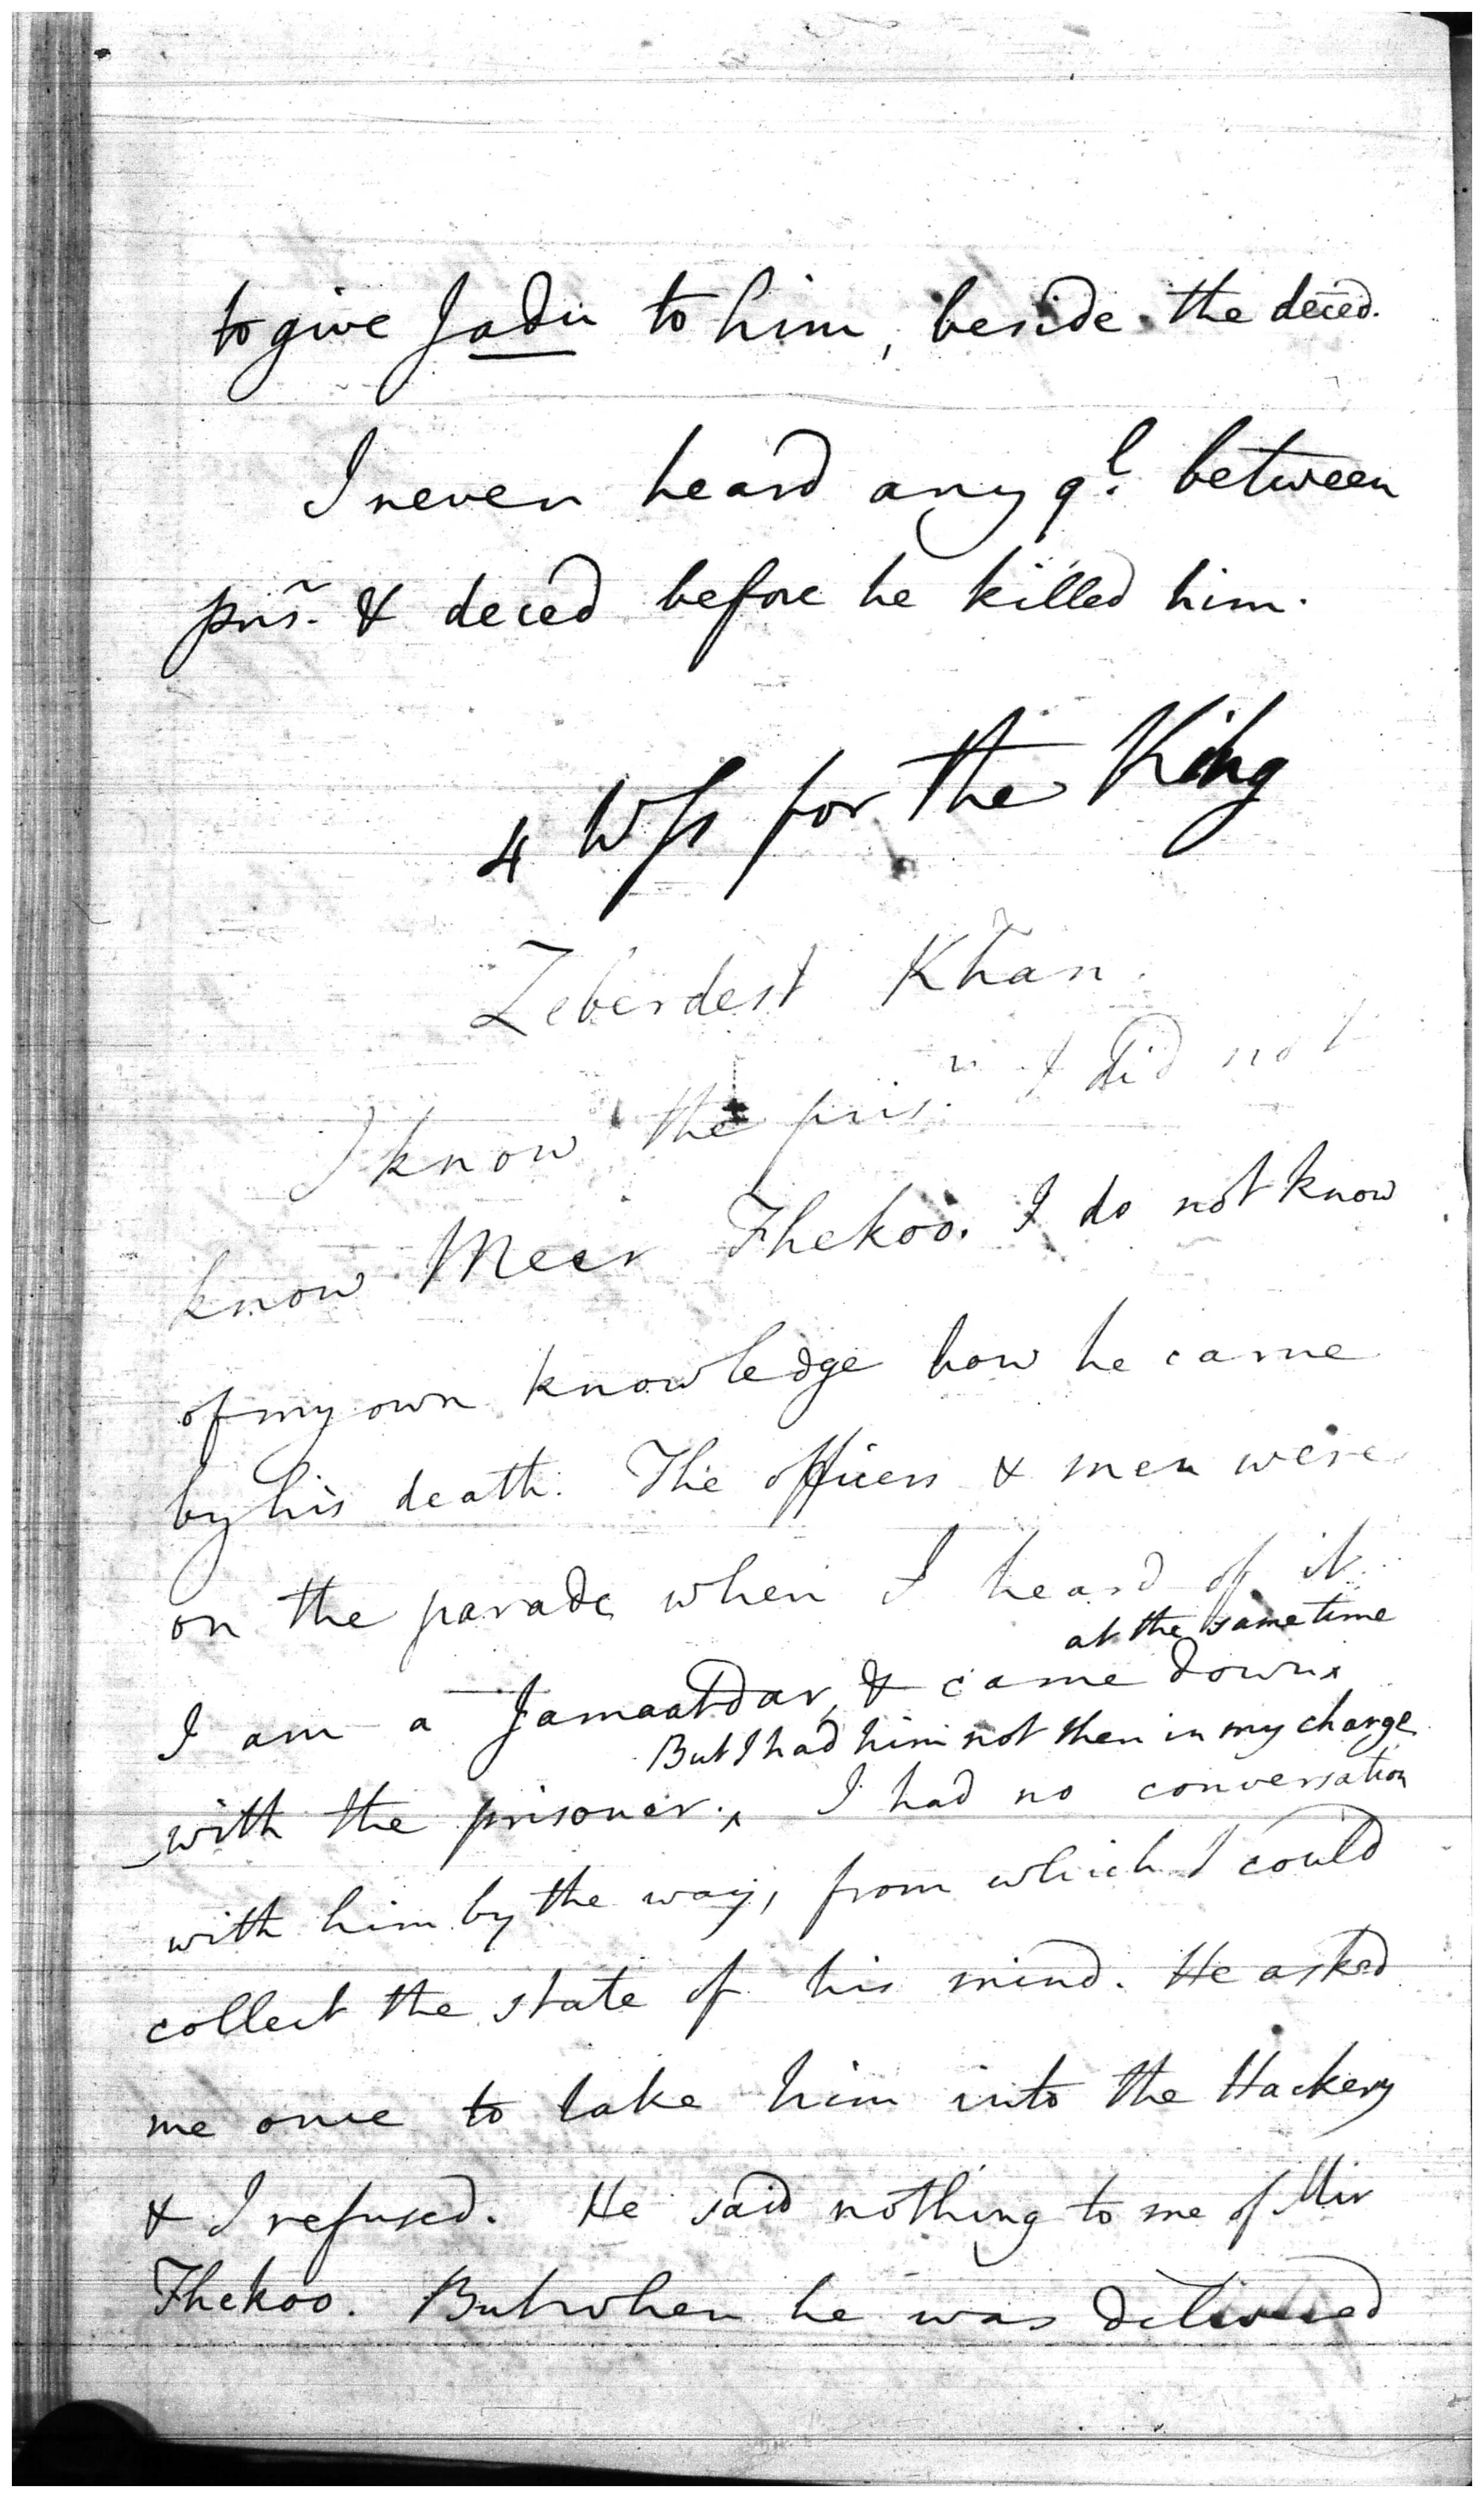 to give Jadu to him, beside the deced.
I never heard any ql. between
prisr. & deced before he killed him.
4 Wss for the King
Zeberdest Khan.
I know the prisr. I did not
know Meer Fhekoo. I do not know
of my own knowledge how he came
by his death. The officers & men were
on the parade when I heard of it.
at the same time
I am a Jamaatdar, & came down
But I had him not then in my charge
with the prisoner. I had no conversation
with him by the way, from which I could
collect the state of his mind. He asked
me once to take him into the Hackery
& I refused. He said nothing to me of Mir
Fhekoo. But when he was delivered